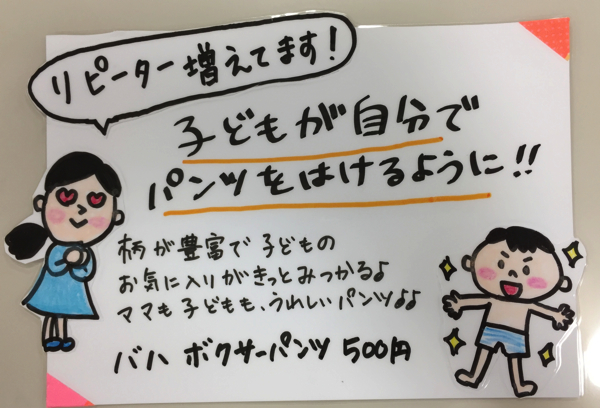 リピーター増えてます!
子どもが自分で
パンツをはけるように!!
柄が豊富で子どもの
お気に入りがきっとみつかる♪
ママも子どもも、うれしいパンツ♪♪
バハ ボクサーパンツ 500円